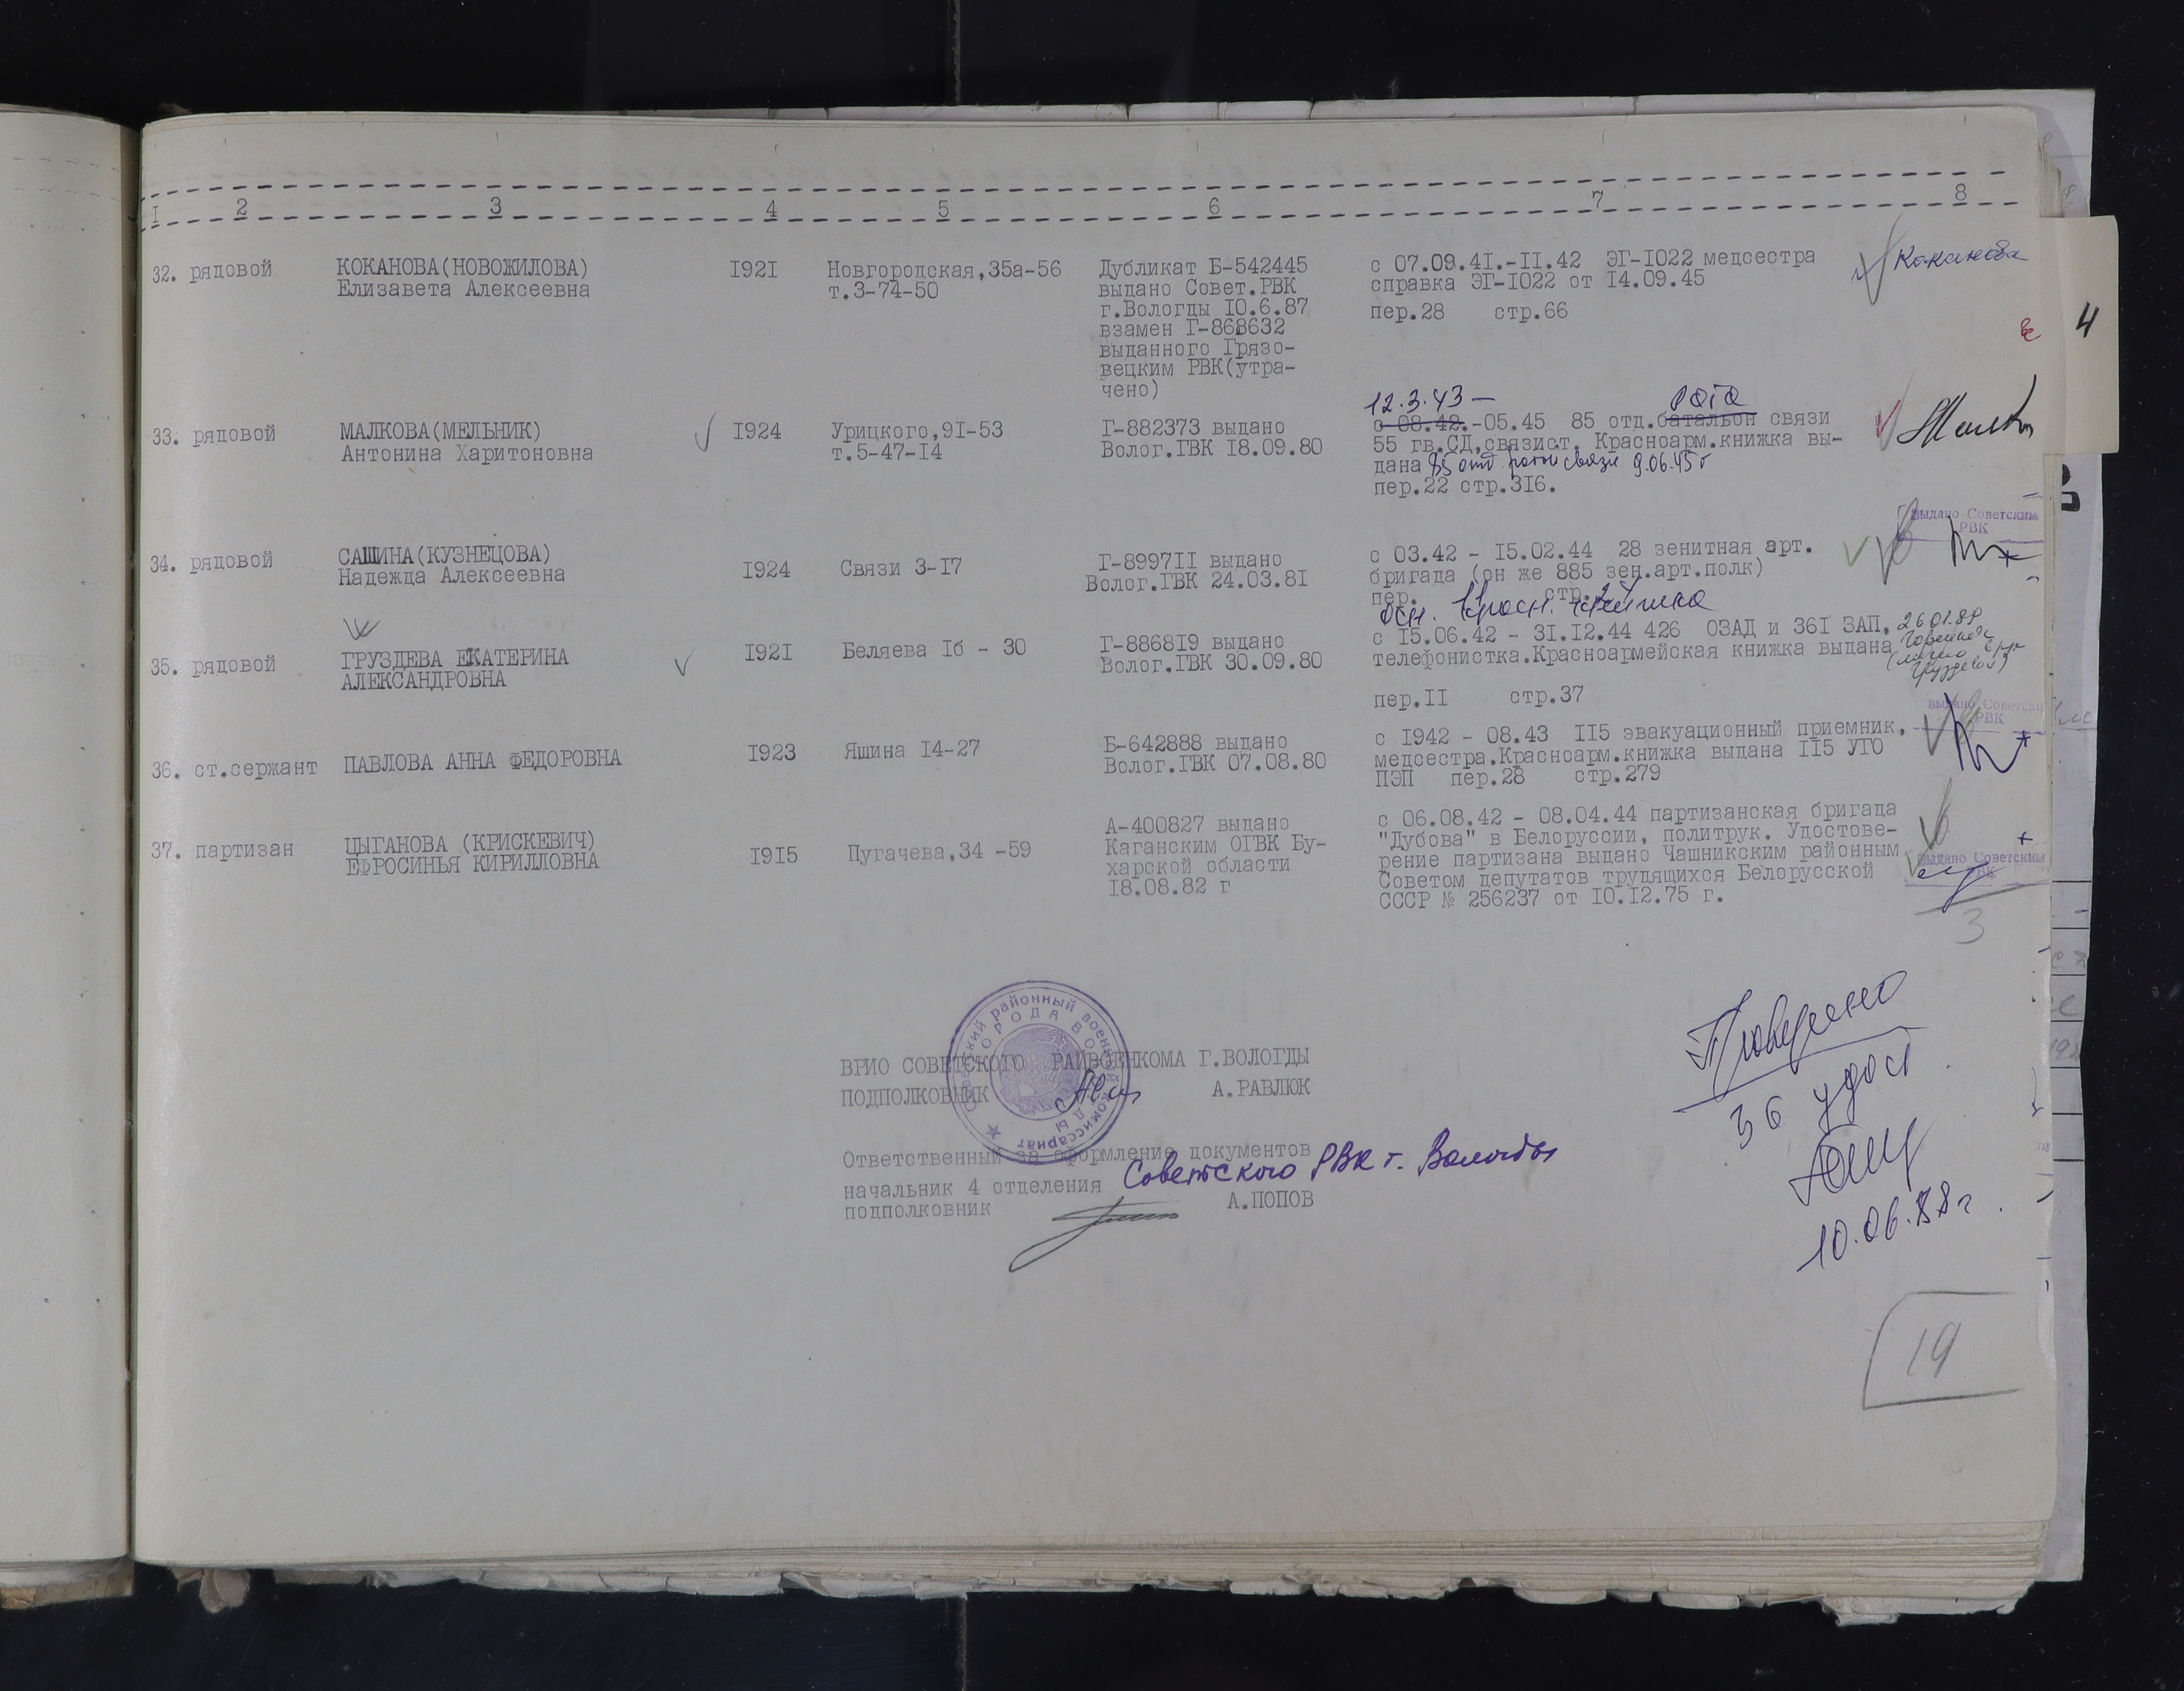 I 2 3 4 5 6 7 8
32. рядовой КОКАНОВА(НОВОЖИЛОВА) I92I Новгородская,35а-56 Дубликат Б-542445 с 07.09.4I.-II.42 ЭГ-I022 медсестра Коканова
Елизавета Алексеевна т.3-74-50 выдано Совет.РВК справка ЭГ-I022 от I4.09.45
г.Вологды I0.6.87 пер.28 стр.66
взамен Г-868632
выданного Грязо-
вецким РВК(утра-
чено)
4
12.3.43 — рота
33. рядовой МАЛКОВА(МЕЛЬНИК) I924 Урицкого,9I-53 Г-882373 выдано с 08.42.-05.45 85 отд.батальон связи
Антонина Харитоновна т.5-47-I4 Волог.ГВК I8.09.80 55 гв.СД,связист. Красноарм.книжка вы-
дана 85 отд роты связи 9.06.45 г
пер.22 стр.3I6.
выдано Советским
РВК
34. рядовой САШИНА(КУЗНЕЦОВА) I924 Связи 3-I7 Г-8997II выдано с 03.42 - I5.02.44 28 зенитная арт.
Надежда Алексеевна Волог.ГВК 24.03.8I бригада (он же 885 зен.арт.полк)
пер. стр.
осн. Красн. книжка
35. рядовой ГРУЗДЕВА ЕКАТЕРИНА I92I Беляева Iб - 30 Г-8868I9 выдано с I5.06.42 - 3I.I2.44 426 ОЗАД и 36I ЗАП, 26.01.89
АЛЕКСАНДРОВНА Волог.ГВК 30.09.80 телефонистка.Красноармейская книжка выдана
пер.II стр.37
выдано Советски
РВК
36. ст.сержант ПАВЛОВА АННА ФЕДОРОВНА I923 Яшина I4-27 Б-642888 выдано с I942 - 08.43 II5 эвакуационный приемник,
Волог.ГВК 07.08.80 медсестра.Красноарм.книжка выдана II5 УГО
ПЭП пер.28 стр.279
37. партизан ЦЫГАНОВА (КРИСКЕВИЧ) I9I5 Пугачева,34 -59 А-400827 выдано с 06.08.42 - 08.04.44 партизанская бригада
ЕФРОСИНЬЯ КИРИЛЛОВНА Каганским ОГВК Бу- "Дубова" в Белоруссии, политрук. Удостове-
харской области рение партизана выдано Чашникским районным
I8.08.82 г Советом депутатов трудящихся Белорусской
СССР № 256237 от I0.I2.75 г.
выдано Советским
РВК
3
Советский районный военный комиссариат
ГОРОДА ВОЛОГДЫ
ВРИО СОВЕТСКОГО РАЙВОЕНКОМА Г.ВОЛОГДЫ
ПОДПОЛКОВНИК А.РАВЛЮК
Ответственный за оформление документов
начальник 4 отделения Советского РВК г. Вологды
подполковник А.ПОПОВ
Проверено
36 удост
10.06.88 г.
19